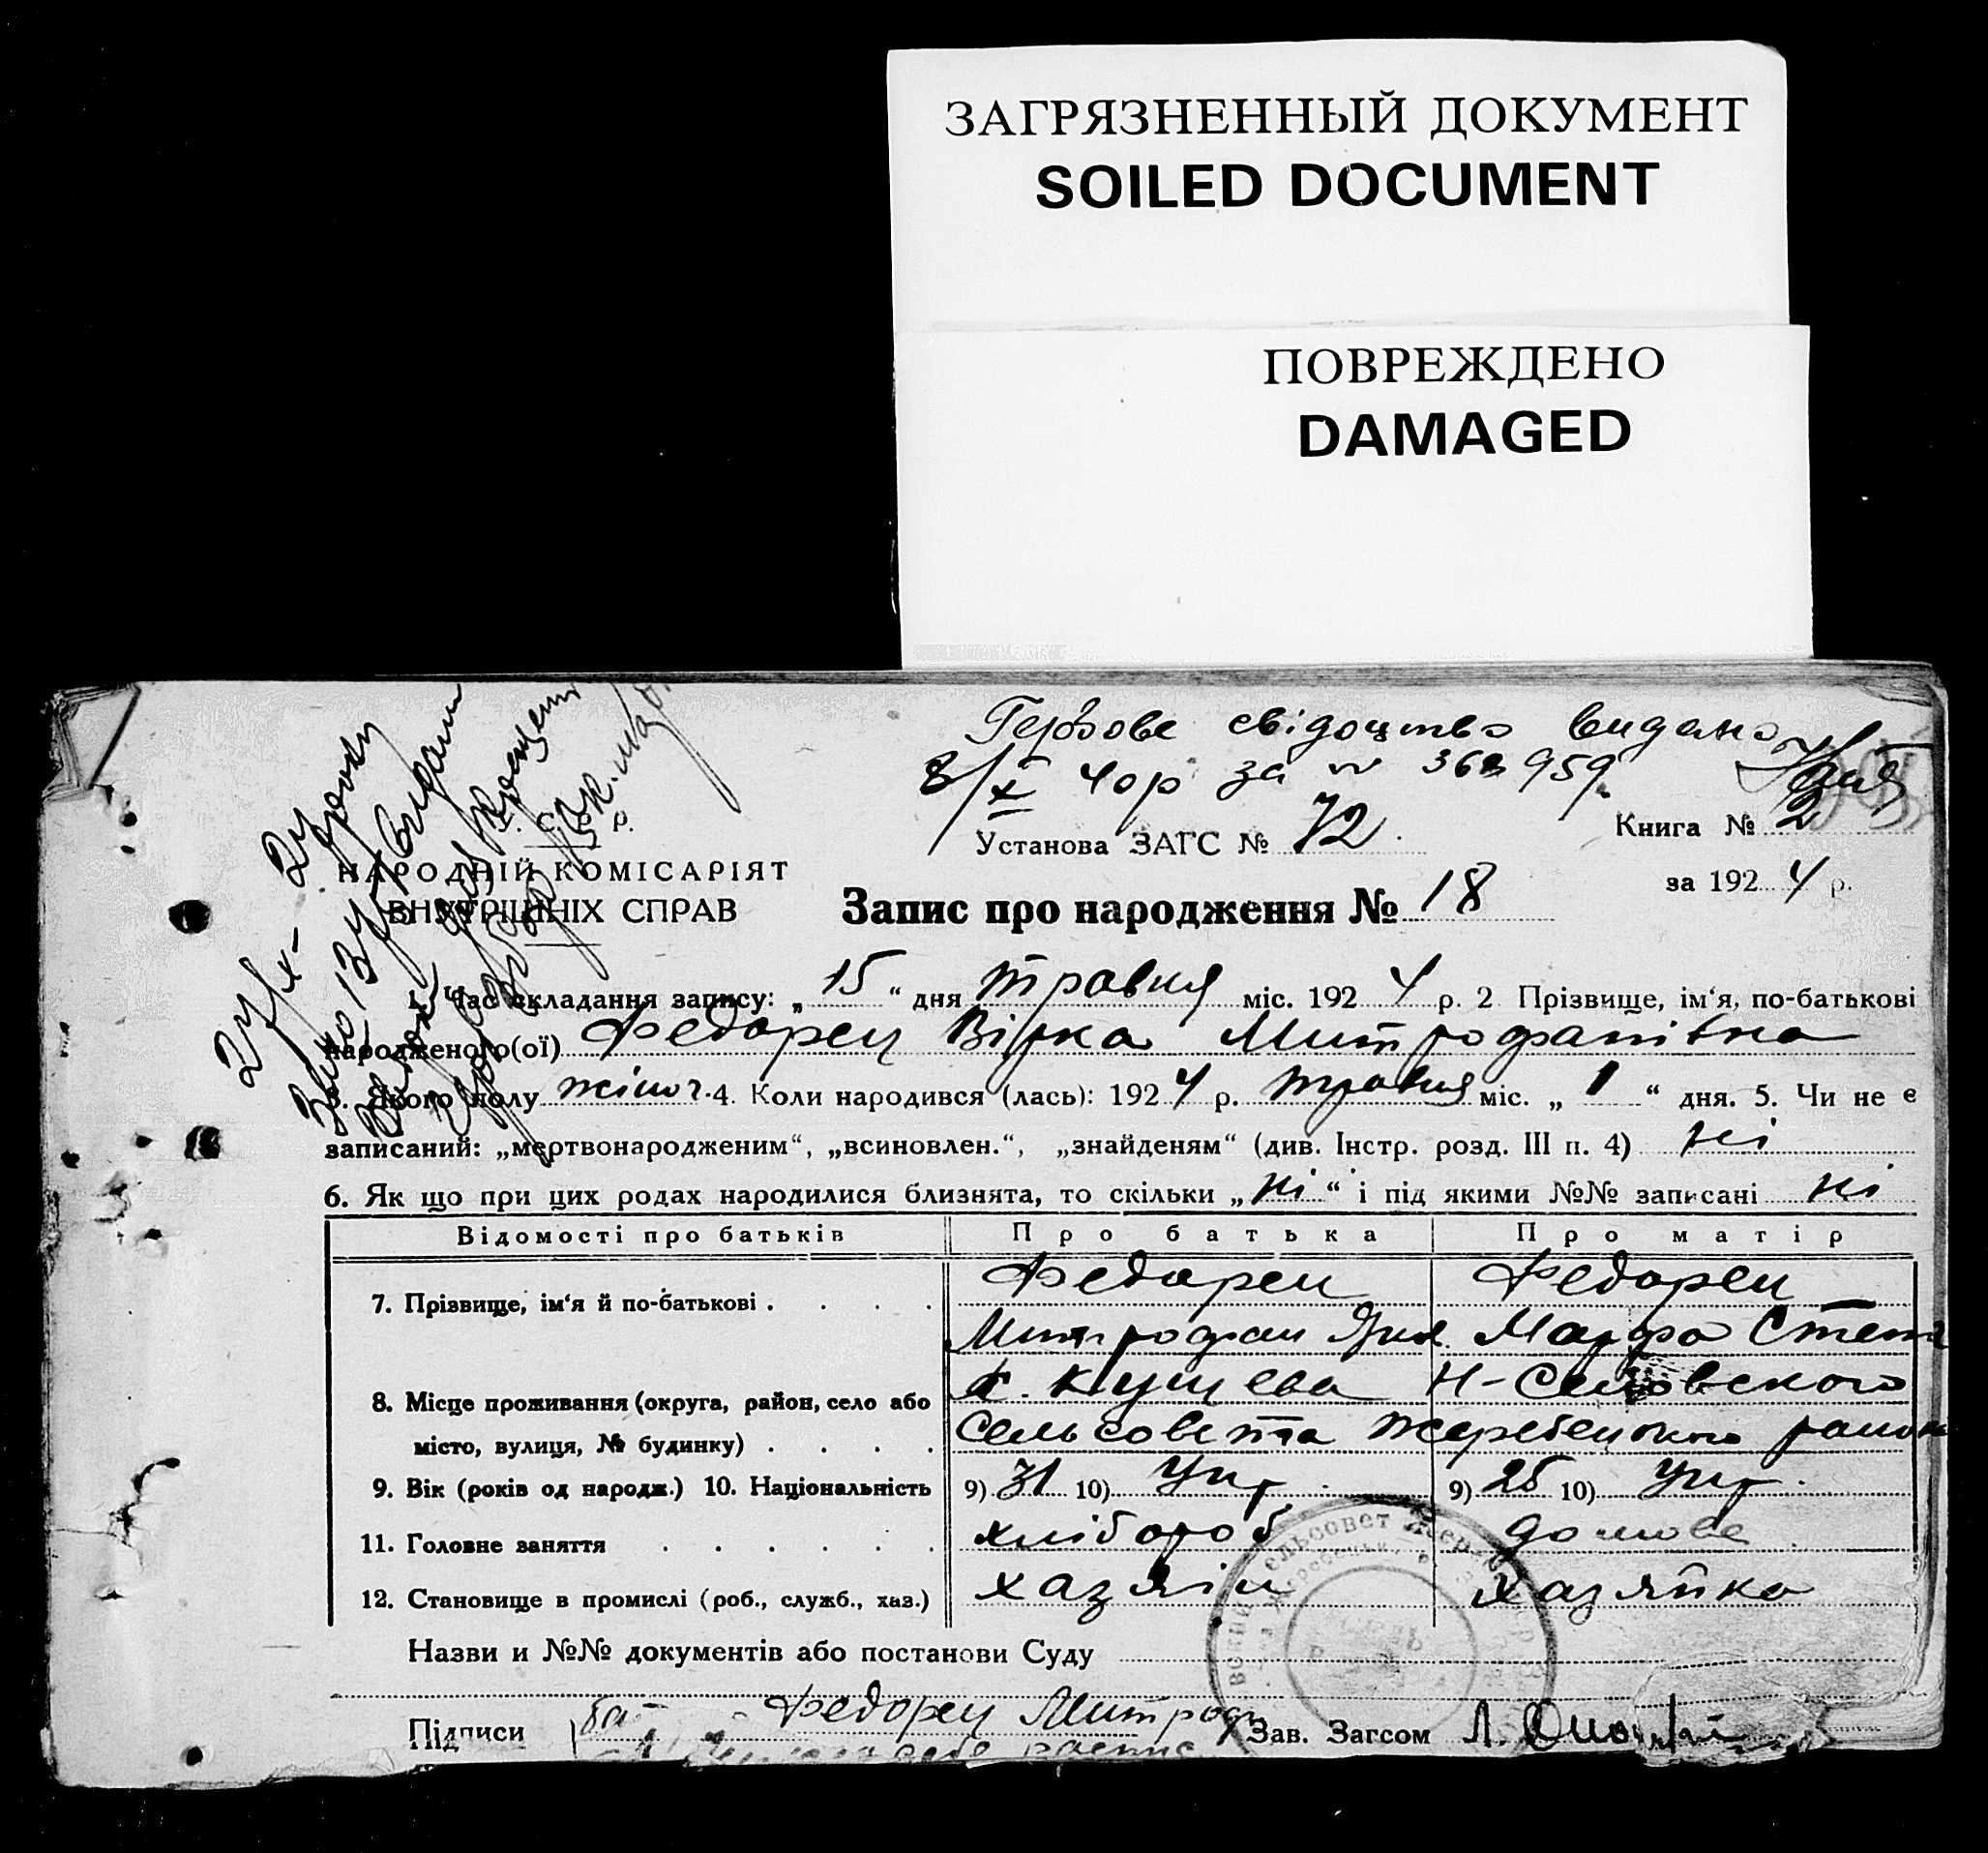 ЗАГРЯЗНЕННЫЙ ДОКУМЕНТ
SOILED DOCUMENT
ПОВРЕЖДЕНО
DAMAGED
Гербове свідоцтво видано
8/X 40р за № 368959
Установа ЗАГС № 72
Книга № 2
за 1924 р.
С. Р. Р.
НАРОДНІЙ КОМІСАРІЯТ
ВНУТРІШНІХ СПРАВ
Запис про народження № 18
1. Час складання запису: „15“ дня травня міс. 1924 р. 2 Прізвище, ім‘я, по-батькові
народженого(ої) Федорец Вірка Митрофанівна
3. Якого полу жіноч. 4. Коли народився (лась): 1924 р. травня міс. „1“ дня. 5. Чи не є
записаний: „мертвонародженим“, „всиновлен.“, „знайденям“ (див. Інстр. розд. III п. 4) ні
6. Як що при цих родах народилися близнята, то скільки „ні“ і під якими №№ записані ні
Відомості про батьків Про батька Про матір
7. Прізвище, ім‘я й по-батькові . . . . Федорец Федорец
Митрофан Марфа Степ
8. Місце проживання (округа, район, село або с. Кущева Н-
місто, вулиця, № будинку) . . . . Сельсовета Жеребецкого район
9. Вік (років од народж.) 10. Національність 9) 31 10) Укр. 9) 25 10) Укр.
11. Головне заняття . . . . . . хлібороб домове
12. Становище в промислі (роб., служб., хаз.) хазяін хазяйка
Назви и №№ документів або постанови Суду
Підписи Федорец Митроф Зав. Загсом Л.